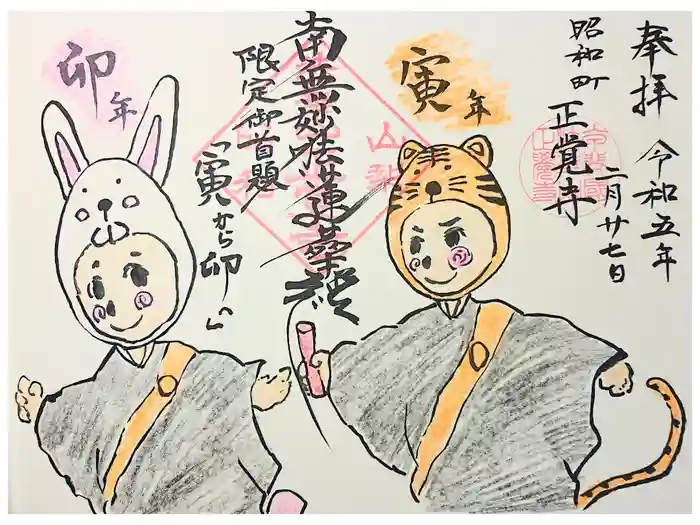 奉拝
令和五年
二月廿七日
昭和町
正覚寺
寅年
南無妙法蓮華経
限定御首題
「寅から卯」
卯年